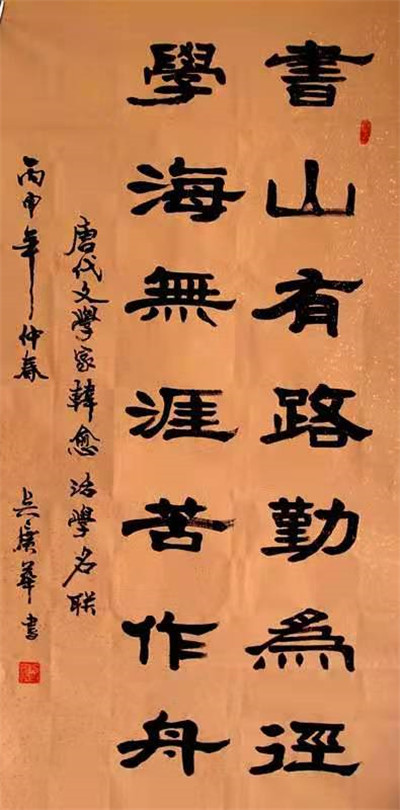 書山有路勤為徑
學海無涯苦作舟
唐代文學家韓愈治學名联
丙申年仲春
吴廣華書